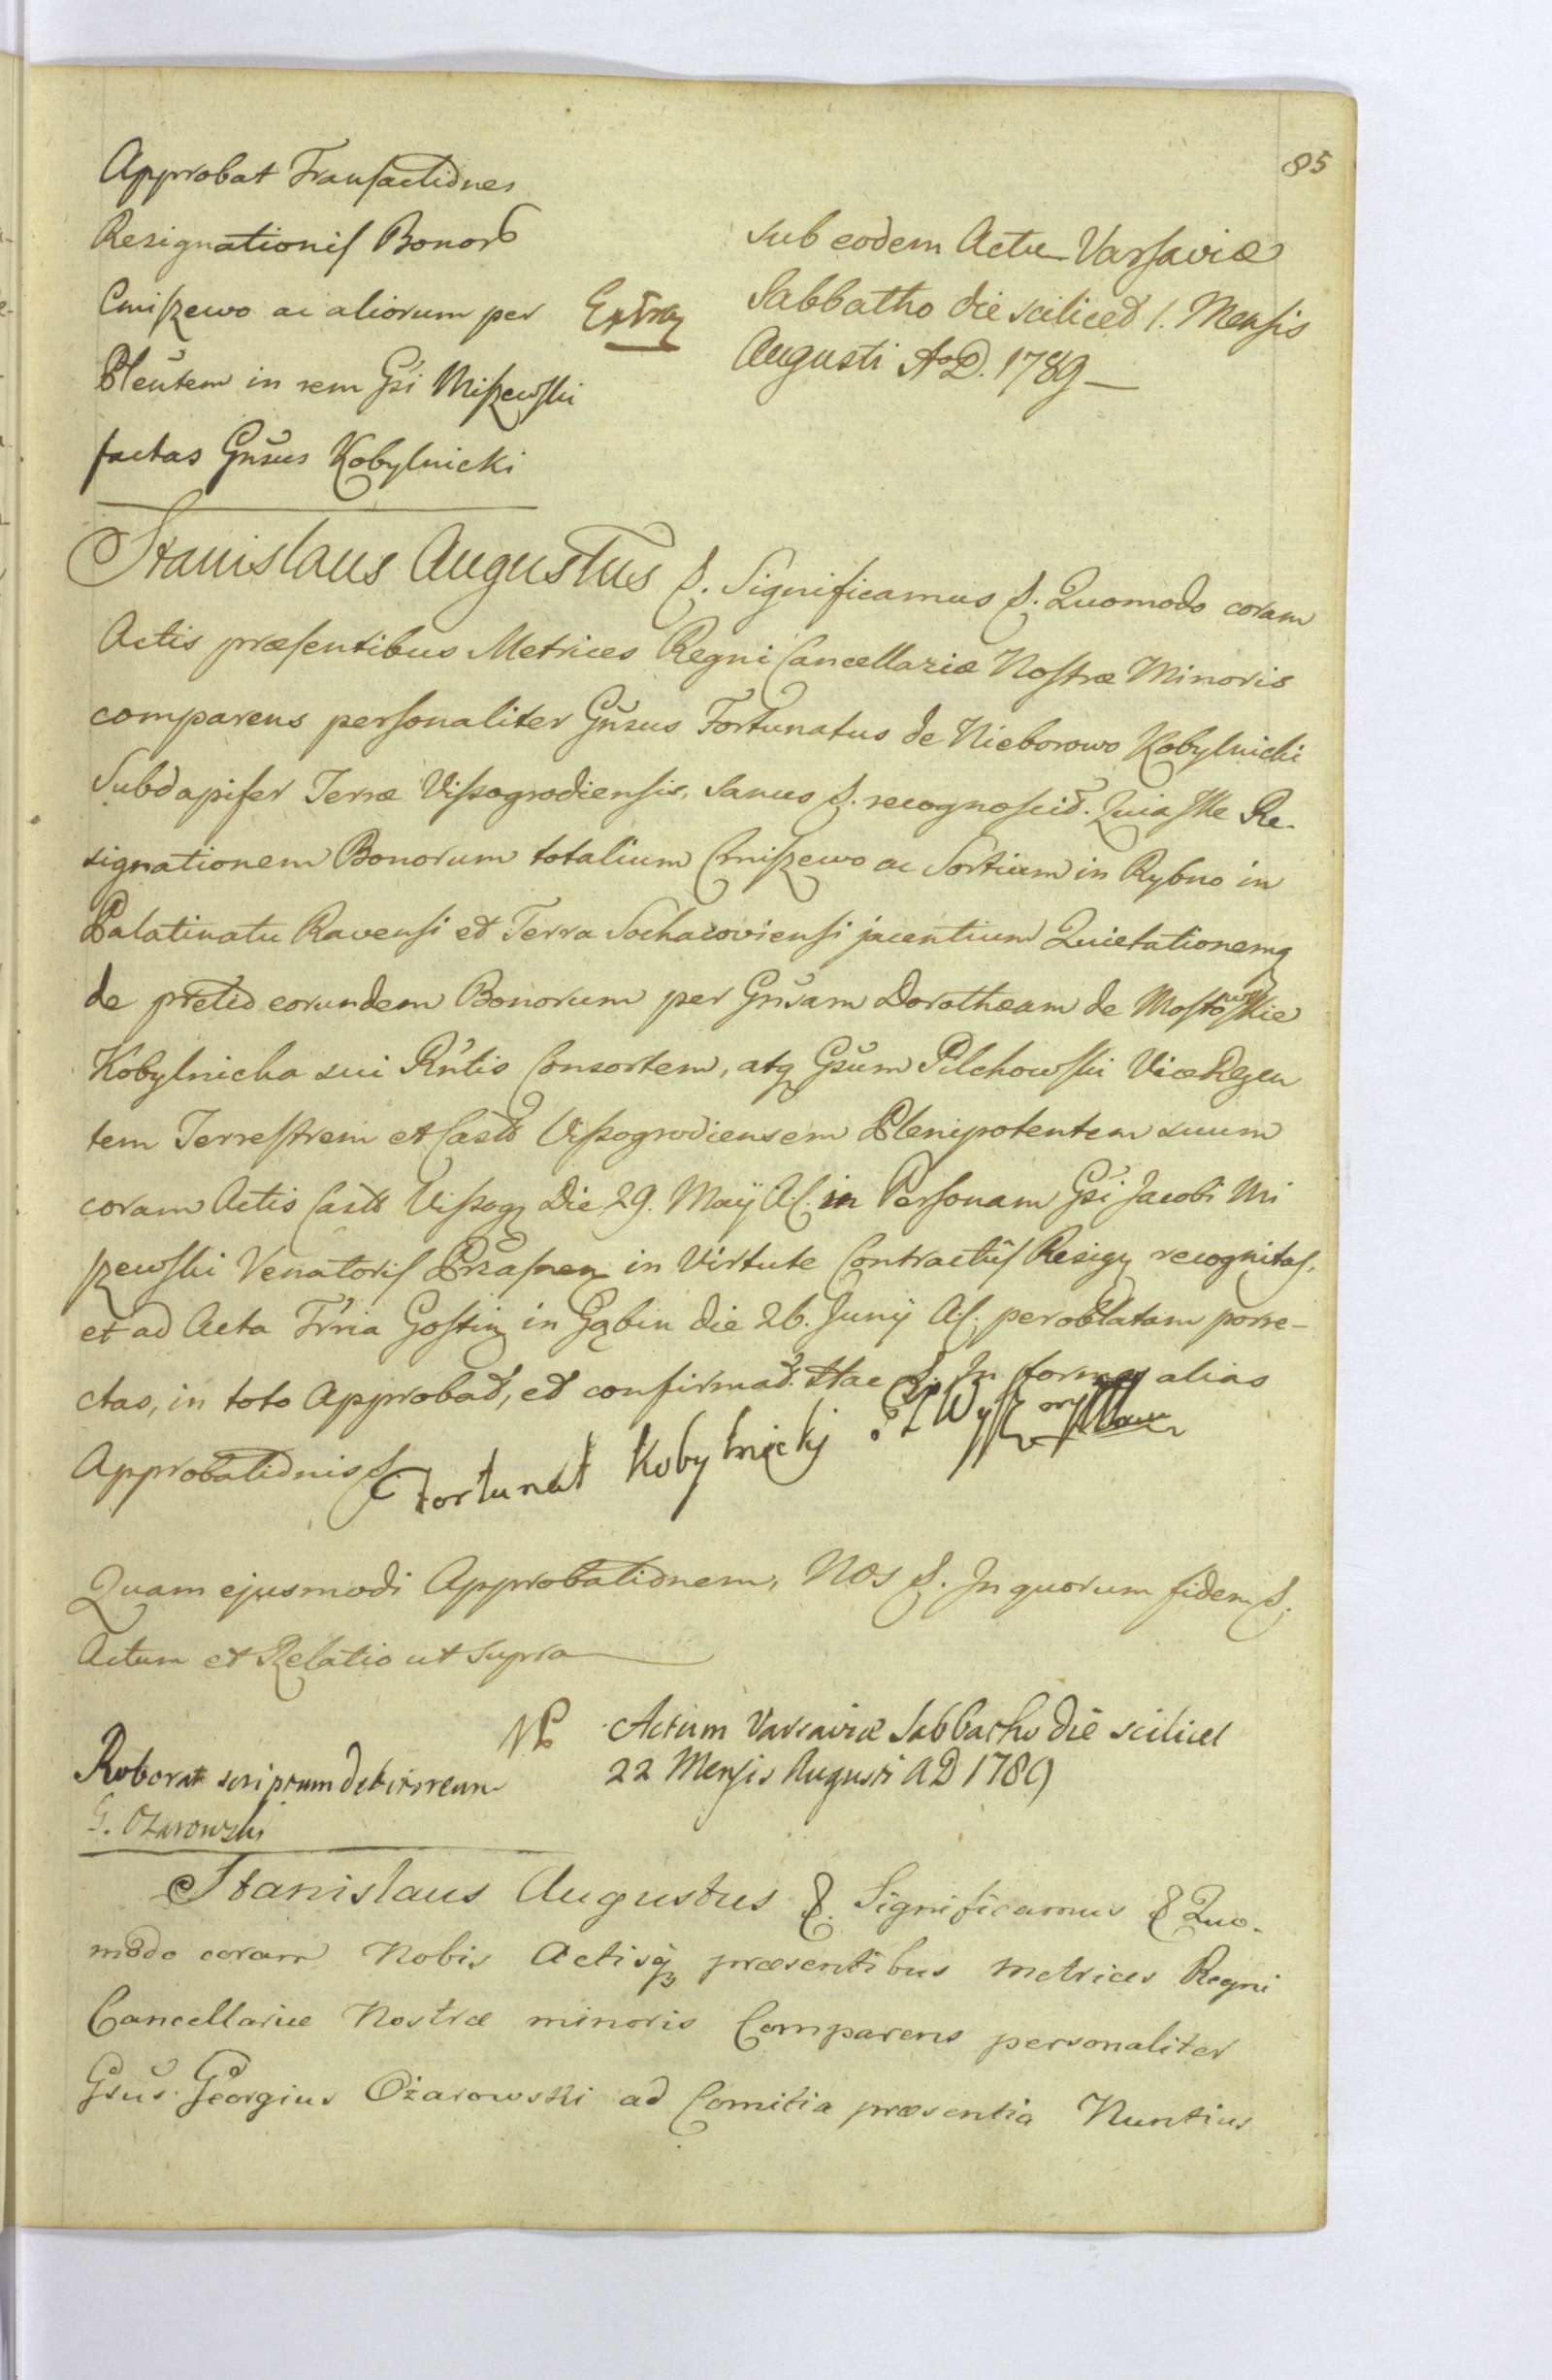 85
Approbat Transactiones
Resignationis Bonor
Cmiszewo ac aliorum per
Pleñtem in rem Gsi Miszewski
factas Gñsus Kobylnicki
Extra
sub eodem Actu Varsaviæ
Sabbatho die scilicet 1. Mensis
Augusti AoD. 1789
Stanislaus Augustus &. Significamus &. Quomodo coram
Actis præsentibus Metrices Regni Cancellariæ Nostræ Minoris
comparens personaliter Gñsus Fortunatus de Nieborowo Kobylnicki
Subdapifer Terræ Vissogrodiensis, sanus &. recognoscit. Quia Ille Re-
signationem Bonorum totalium Cmiszewo ac Sortium in Rybno in
Palatinatu Ravensi et Terra Sochacoviensi jacentium Quietationemq
de pretio eorundem Bonorum per Gñsam Dorotheam de Mostowskie
Kobylnicka sui Rñtis Consortem, atq Gsum Pilchowski ViceRegen
tem Terrestrem et Castr Vissogrodiensem Plenipotentem suum
coram Actis Castr Vissog Die 29. Maÿ A. in Personam Gsi Jacobi Mi
szewski Venatoris Przasnen in Virtute Contractus Resig recognitas,
et ad Acta Trria Gostin in Gąbin die 26. Junÿ A. per oblatam porre-
ctas, in toto Approbat, et confirmat. Hac &. In formam alias
Approbationis &.
Fortunat Kobylnicky
Quam ejusmodi Approbationem, Nos &. In quorum fidem &.
Actum et Relatio ut supra
Roborat scriptum debitoreum
G. Ozarowski
Actum Varsaviæ Sabbatho die scilicet
22 Mensis Augusti AD 1789
Stanislaus Augustus &. Significamus & Quo-
modo coram Nobis Actisq præsentibus Metrices Regni
Cancellariæ Nostræ minoris Comparens personaliter
Gsus Georgius Ożarowski ad Comitia præsentia Nuntius